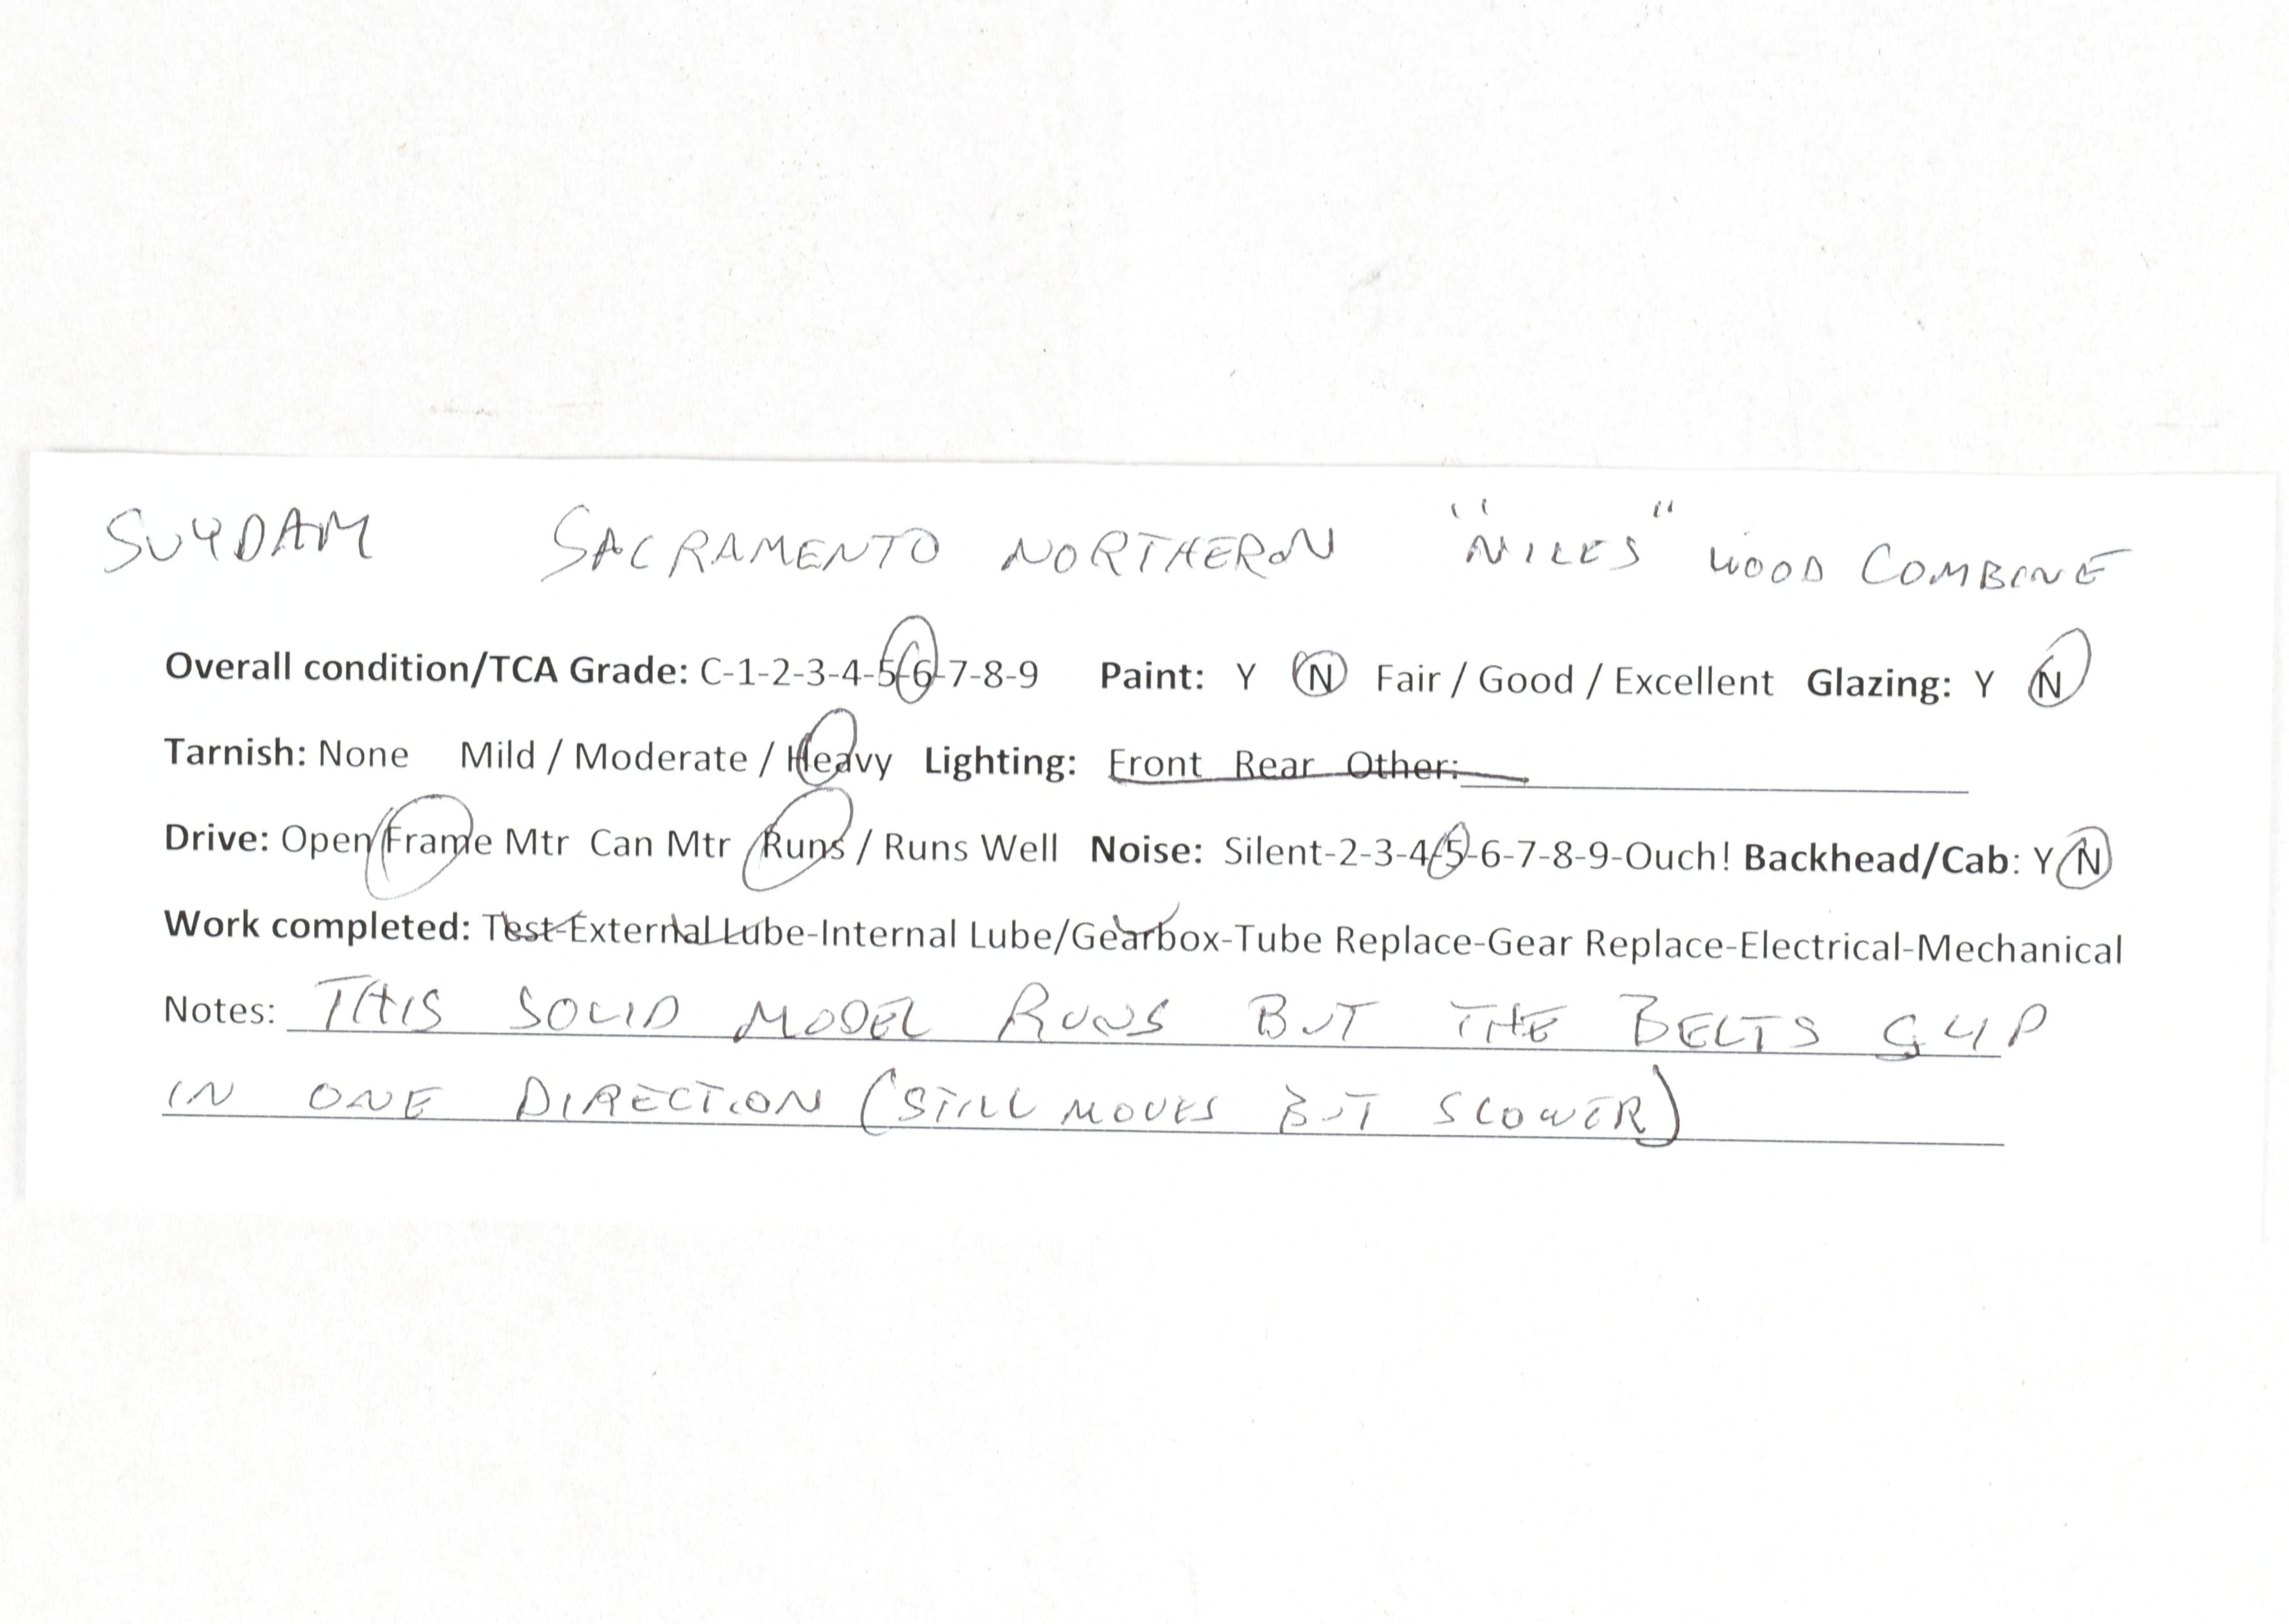 SUYDAM SACRAMENTO NORTHERN "NILES" WOOD COMBINE
Overall condition/TCA Grade: C-1-2-3-4-5-6-7-8-9 Paint: Y N Fair / Good / Excellent Glazing: Y N
Tarnish: None Mild / Moderate / Heavy Lighting: Front Rear Other:
Drive: Open Frame Mtr Can Mtr Runs / Runs Well Noise: Silent-2-3-4-5-6-7-8-9-Ouch! Backhead/Cab: Y N
Work completed: Test-External Lube-Internal Lube/Gearbox-Tube Replace-Gear Replace-Electrical-Mechanical
Notes: THIS SOLID MODEL RUNS BUT THE BELTS SLIP
IN ONE DIRECTION (STILL MOVES BUT SLOWER)